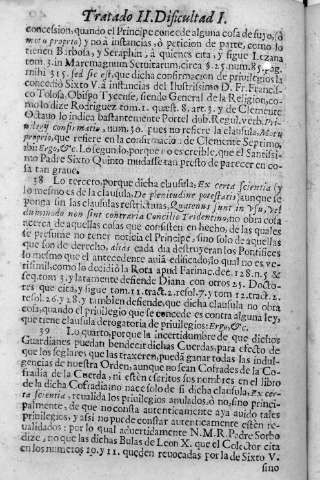 Tratado II. Dificultad I.
concession, quando el Principe concede alguna cosa de suyo, ò
motu proprio) y no à instancias, ò peticion de parte, como lo
tienen Barbosa, y Seraphin, à quienes cita, y sigue Lezana
tom. 3. in Maremagnum Servitarum, circa §. 25. num. 85. pag.
mihi 315. sed sic est, que dicha confirmacion de privilegios la
concediò Sixto V. à instancias del Ilustrissimo D. Fr. Francis-
co Tolosa, Obispo Tycense, siendo General de la Religion, co-
mo lo dize Rodriguez tom. 1. quæst. 8. art. 3. y de Clemente
Octavo lo indica bastantemente Portel dub. Regul. verb. Pri-
vilegij confirmatio, num. 30. pues no refiere la clausula, Motu
proprio, que refiere en la confirmacion de Clemente Septimo,
ibi: Ergo, &c. Lo segundo, porque no es creible, que el Santissi-
mo Padre Sixto Quinto mudasse tan presto de parecer en co-
sa tan grave.
38 Lo tercero, porque dicha clausula, Ex certa scientia (y
lo mesmo es de la clausula, De plenitudine potestatis) aunque se
ponga sin las clausulas restrictivas, Quatenus sunt in usu, vel
dummodo non sint contraria Concilio Tridentino, no obra cosa
acerca de aquellas cosas que consisten en hecho, de las quales
se presume no tener noticia el Principe, sino solo de aquellas
que son de derecho, aliàs cada dia destruyeran los Pontifices
lo mesmo que el antecedente avia edificado, lo qual no es ve-
risimil, como lo decidiò la Rota apud Farinac. dec. 128. n. 5. &
seq. tom. 3. y latamente defiende Diana con otros 25. Docto-
res que cita, y sigue tom. 11. tract. 2. resol. 7. y tom 12. tract. 2.
resol. 26. y 28. y tambien defiende, que dicha clausula no obra
cosa, quando el privilegio que se concede es contra alguna ley,
que tiene clausula derogatoria de privilegios: Ergo, &c.
39 Lo quarto, porque la incertidumbre de que dichos
Guardianes puedan bendecir dichas Cuerdas, para efecto de
que los seglares que las traxeren, pueda ganar todas las indul-
gencias de nuestra Orden, aunque no sean Cofrades de la Co-
fradia de la Cuerda, ni estèn escritos sus nombres en el libro
de la dicha Cofradia no nace solo de si dicha clausula, Ex cer-
ta scientia, revalida los privilegios anulados, ò no, sino princi-
palmente, de que no consta autenticamente aya avido tales
privilegios, y assi no puede constar autenticamente estèn re-
validados: por lo qual advertidamente N. M. R. Padre Sorbo
dize, no que las dichas Bulas de Leon X. que el Colector cita
en los numeros 10. y 11. queden revocadas por la de Sixto V.
sino